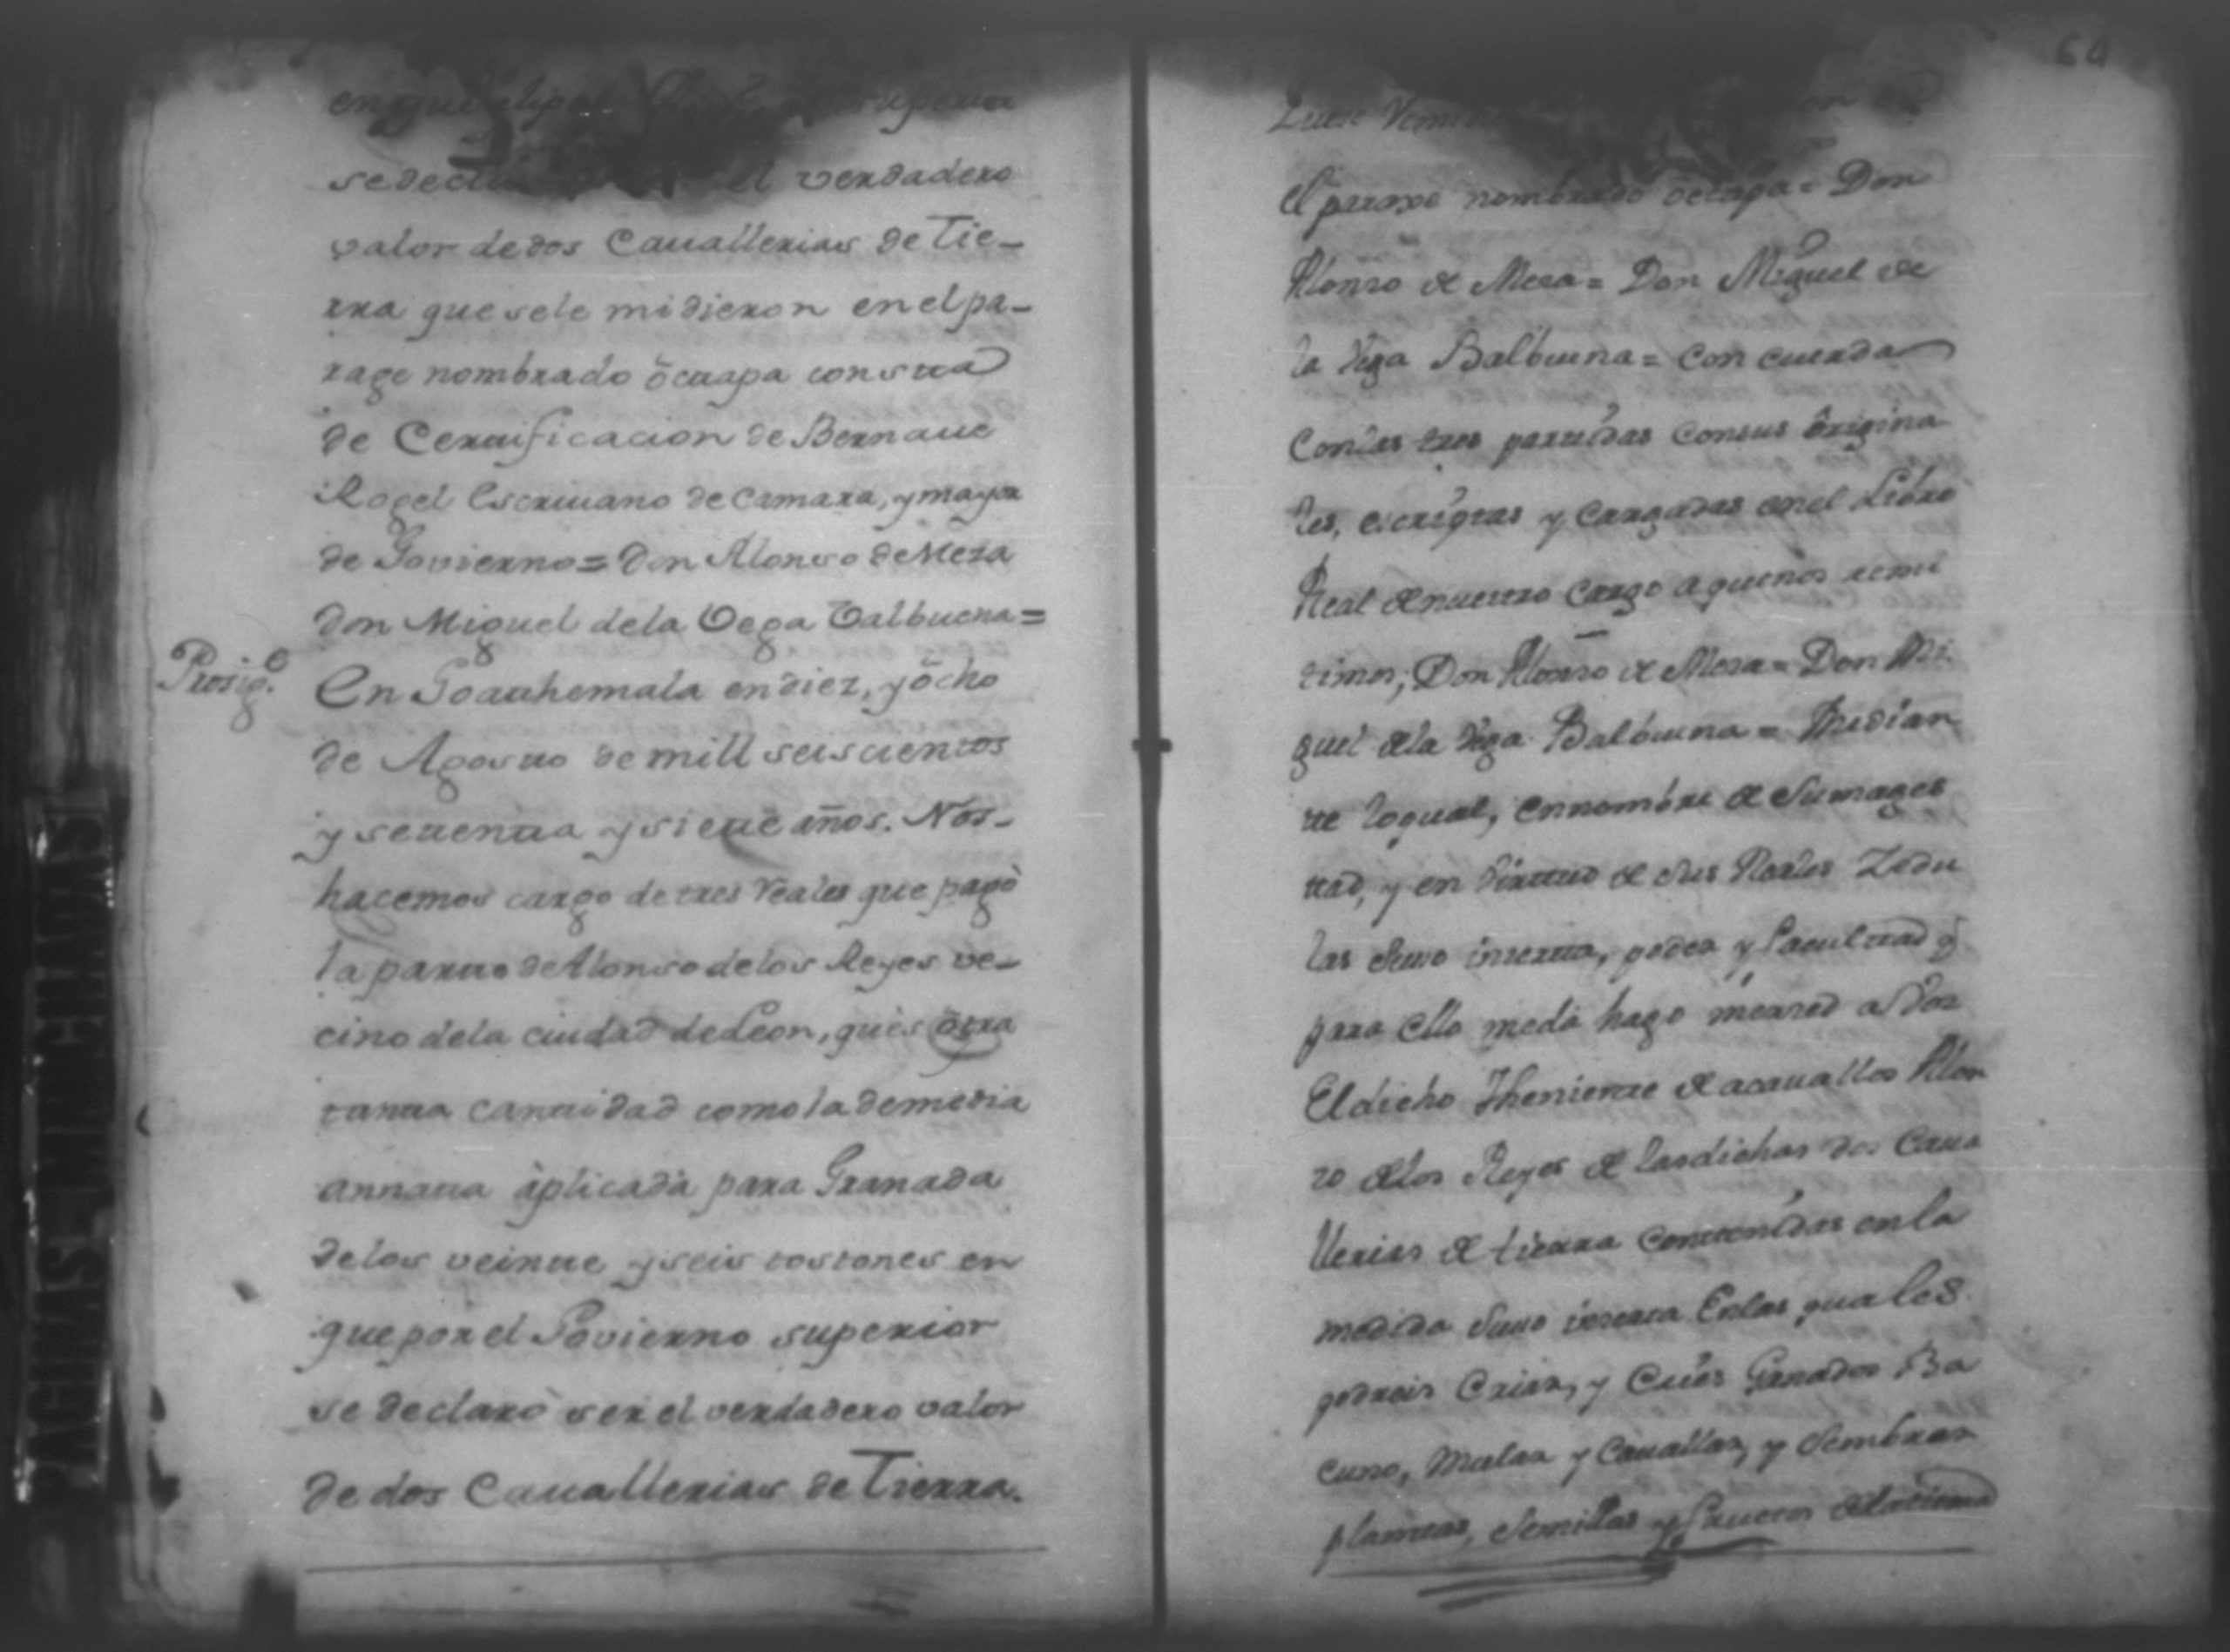 en que el
se decla el verdadero
valor de dos Cauallerias de Tie-
rra que sele midieron en el pa-
rage nombrado ôcuapa consta
de Certificacion de Bernaue
Rogel Escriuano de Camara, y mayor
de Govierno = Don Alonso de Meza
Don Miguel dela Vega Valbuena =
Prosig.e
En Goathemala en diez, y ôcho
de Agosto de mill seiscientos
y setenta y siete años. Nos-
hacemos cargo de tres reales que pagò
la parte de Alonso delos Reyes ve-
cino dela ciudad de Leon, qu es ôtra
tanta cantidad como la de media
annata àplicada para Granada
delos veinte y seis tostones en
que por el Govierno superior
se declarò ser el verdadero valor
de dos Cauallerias de Tierra.
60
el paraxe nombrado = Don
Alonso de Mesa = Don Miguel de
la Vega Balbuena = Con cuerda
Con las tres partidas Con sus ôrigina
les, escriptas y Cargadas en el Libro
Real de nuestro Cargo a que nos remi
timos; Don Alonso de Mesa = Don Mi
guel dela Vega Balbuena = Median
te loqual, en nombre de Su mages
tad, y en Virtud de Sus Reales Zedu
las Suso inserta, poder y facultad q̃
para ello me dà hago merced a Vos
El dicho Theniente de acauallos Alon
zo delos Reyes de las dichas dos Caua
llerias de tierra Contenidas en la
medida Suso inserta En las quales
podreis Criar, y Criés Ganados Ba
cuno, Mular y Cauallar, y Sembrar
plantas, Semillas y frutos dela tierra